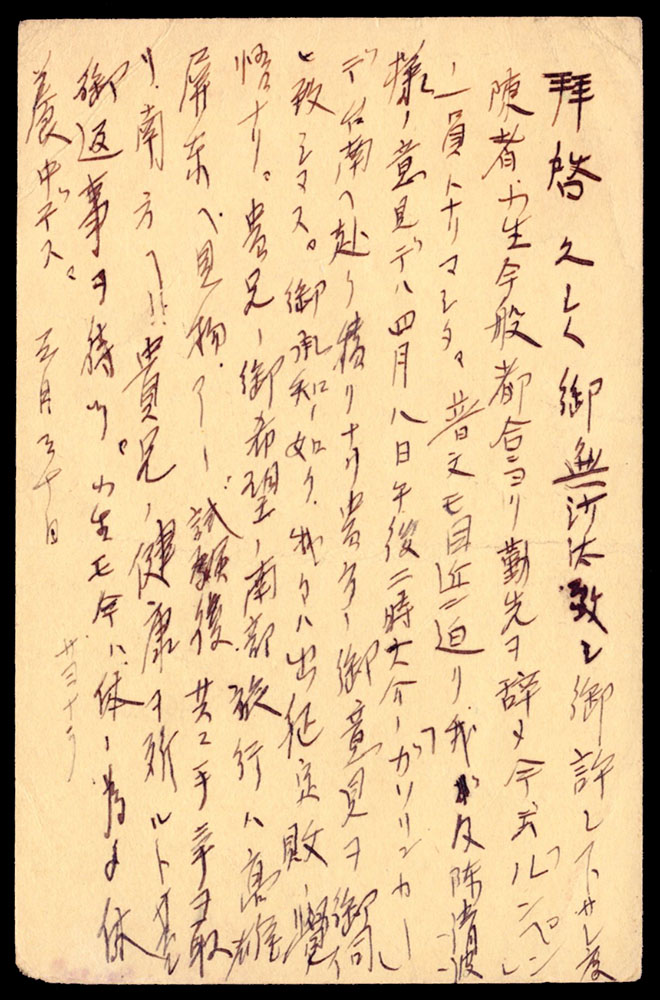 拝啓 久シク御無沙汰致シ御許シ下サレ度
陳者小生今般都合ニヨリ勤先ヲ辞メ今ハ「ルンペン」
ノ一員トナリマシタ。普文モ目近ニ迫リ我ガ友陳清波
様ノ意見デハ四月八日午後二時大介ノ「ガソリンカー」
デ台南ヘ赴ク積リナリ貴方ノ御意見ヲ御伺
ヒ致シマス。御承知ノ如ク我々ハ出征定敗ノ覚
悟ナリ。貴兄ノ御希望ノ南部旅行ハ高雄
屏東ヘ見物 試験後共ニ手ヲ取
リ南方ヘ!! 貴兄ノ健康ヲ祈ルト共ニ
御返事ヲ待ツ。小生モ今ハ休ノ為メ休
養中デス。 三月三十日